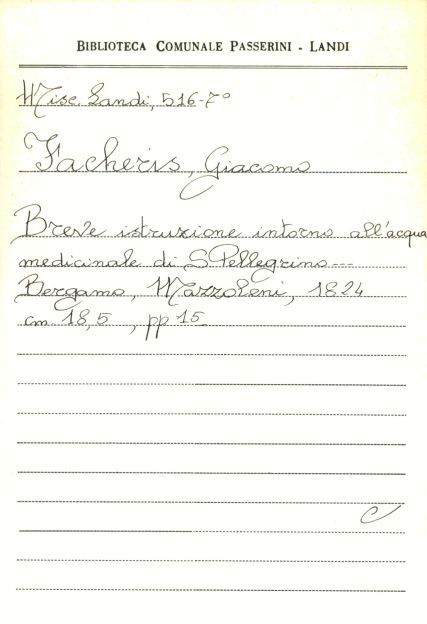 BIBLIOTECA COMUNALE PASSERINI - LANDI
Misc. Landi, 516-7°
Facheris, Giacomo
Breve istruzione intorno all'acqua
medicinale di S. Pellegrino---
Bergamo, Mazzoleni, 1824
cm. 18,5 , pp 15
C